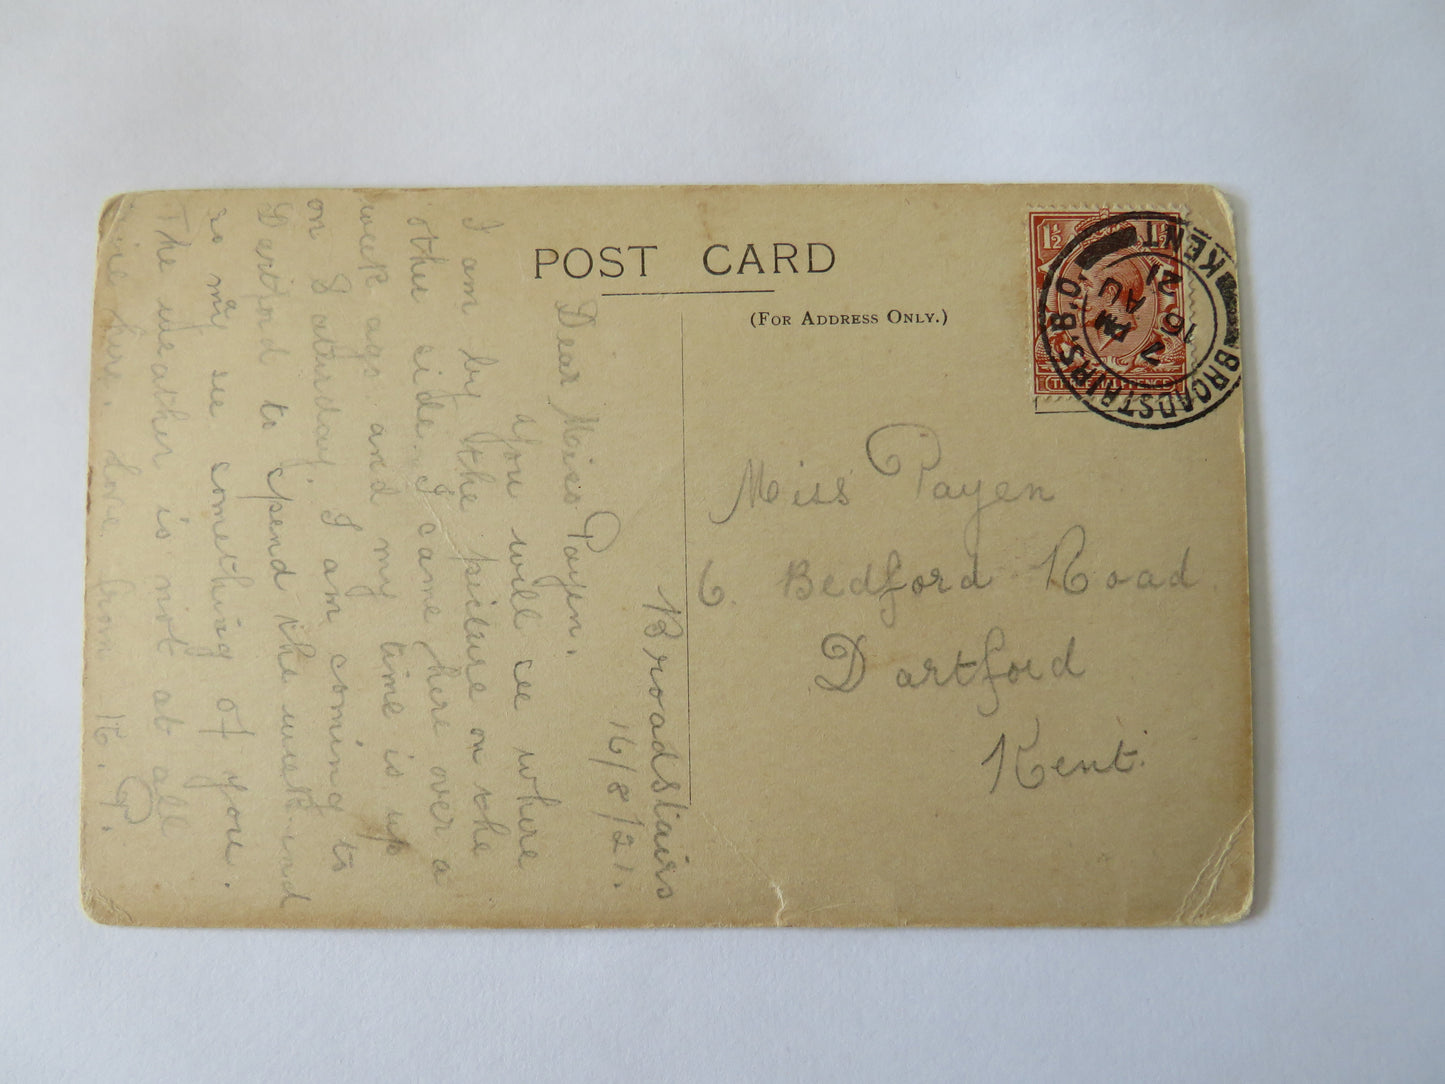 POST CARD
(FOR ADDRESS ONLY.)
1½ 1½
THREE HALFPENCE
BROADSTAIRS B.O. KENT
7 PM
16 AU
21
Miss Payen
6. Bedford Road
Dartford
Kent.
Broadstairs
16/8/21.
Dear Miss Payen.
you will see where
I am by the picture on the
other side. I came here over a
week ago and my time is up
on Saturday. I am coming to
Dartford to spend the week-end
so may see something of you.
The weather is not at all
nice here. Love from